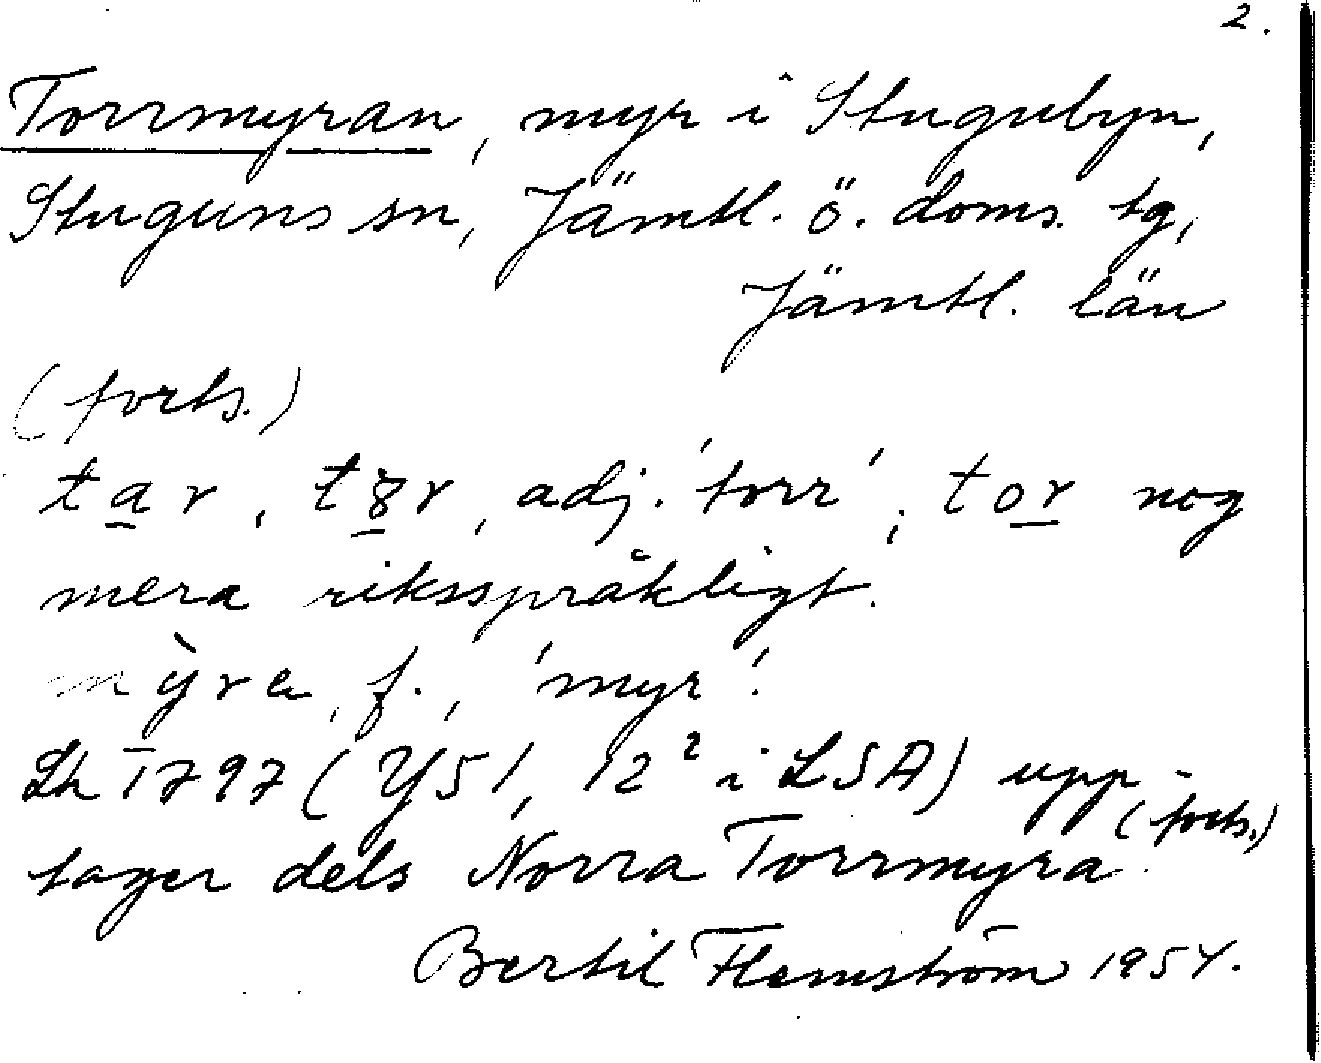 2.
Torrmyran, myr i Stugubyn,
Stuguns sn, Jämtl. ö. doms. tg,
Jämtl. län
(forts.)
tar, tȣr, adj. 'torr'; tor nog
mera riksspråkligt.
m ỳra, f., 'myr'.
Lh 1797 (Y51, 12² i LSA) upp-
(forts.)
tager dels Norra Torrmyra
Bertil Flemström 1954.